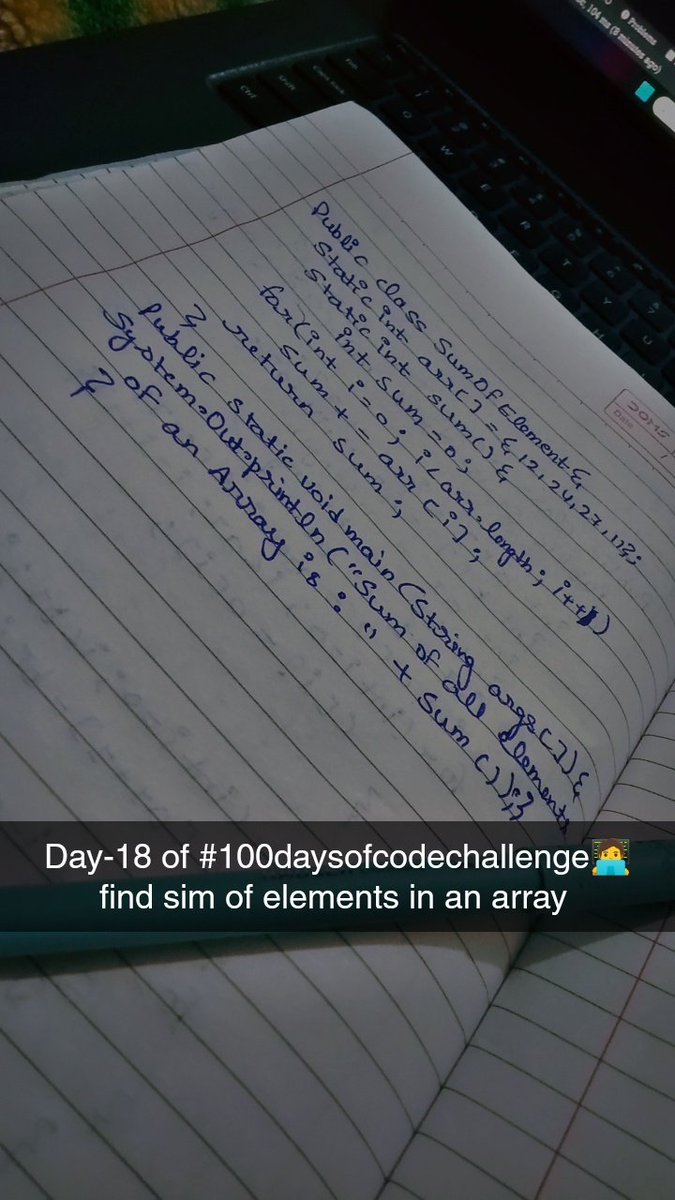 104 ms (8 minutes ago)
Problems
Ctrl
Shift
Caps Lock
Tab
Q
W
E
R
T
Y
U
DOMS
Date
Public class SumOfElement{
Static int arr[] = {12,24,27,11};
Static int sum(){
int sum=0;
for(int i=0; i<arr.length; i++)
sum+=arr[i];
return sum;
}
Public static void main(String args[]){
System.Out.println("Sum of all Elements
of an Array is : " + Sum());}
}
Day-18 of #100daysofcodechallenge🧑‍💻
find sim of elements in an array